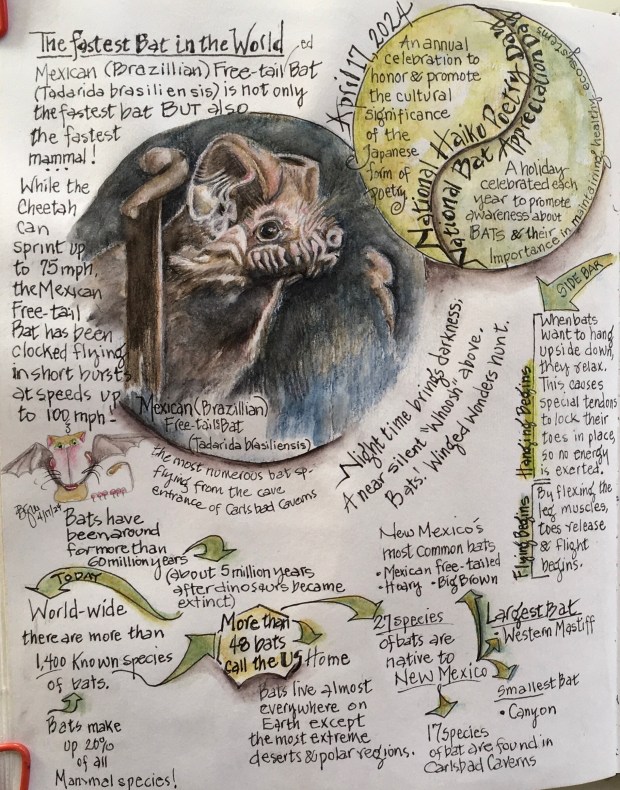 The fastest Bat in the World
Mexican (Brazillian) Free-tailed Bat
(Tadarida brasiliensis) is not only
the fastest bat BUT also
the fastest
mammal!
While the
Cheetah
can
sprint up
to 75 mph,
the Mexican
Free-tail
Bat has been
clocked flying
in short bursts
at speeds up
to 100 mph!
April 17, 2024
An annual
celebration to
honor & promote
the cultural
significance
of the
Japanese
form of
poetry
National Haiku Poetry Day
National Bat Appreciation Day
A holiday
celebrated each
year to promote
awareness about
BATs & their
Importance in maintaining healthy ecosystems
Mexican (Brazillian)
Free-tails Bat
(Tadarida blasiliensis)
the most numerous bat sp-
flying from the cave
entrance of Carlsbad Caverns
Night time brings darkness,
A near silent "Whoosh" above.
Bats! Winged Wonders hunt.
SIDE BAR
Hanging Begins
When bats
want to hang
upside down,
they relax.
This causes
special tendons
to lock their
toes in place,
so no energy
is exerted.
Flying Begins
By flexing the
leg muscles,
toes release
& flight
begins.
4/17/24
Bats have
been around
for more than
60 million years
(about 5 million years
after dinosaurs became
extinct)
TODAY
World-wide
there are more than
1,400 known species
of bats.
Bats make
up 20%
of all
Mammal species!
More than
48 bats
call the US Home
Bats live almost
everywhere on
Earth except
the most extreme
deserts & polar regions.
New Mexico's
most common bats
• Mexican free-tailed
• Hoary • Big Brown
27 species
of bats are
native to
New Mexico
Largest Bat
• Western Mastiff
Smallest Bat
• Canyon
17 species
of bat are found in
Carlsbad Caverns